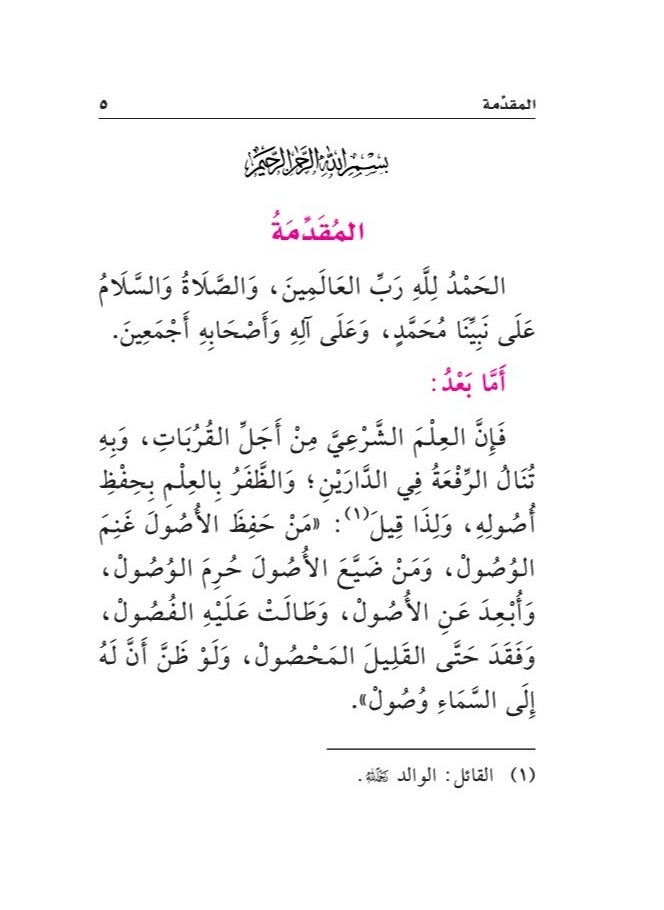 المقدِّمة ٥
بسم الله الرحمن الرحيم
المُقَدِّمَةُ
الحَمْدُ لِلَّهِ رَبِّ العَالَمِينَ، وَالصَّلَاةُ وَالسَّلَامُ
عَلَى نَبِيِّنَا مُحَمَّدٍ، وَعَلَى آلِهِ وَأَصْحَابِهِ أَجْمَعِينَ.
أَمَّا بَعْدُ:
فَإِنَّ العِلْمَ الشَّرْعِيَّ مِنْ أَجَلِّ القُرُبَاتِ، وَبِهِ
تُنَالُ الرِّفْعَةُ فِي الدَّارَيْنِ؛ وَالظَّفَرُ بِالعِلْمِ بِحِفْظِ
أُصُولِهِ، وَلِذَا قِيلَ(١): «مَنْ حَفِظَ الأُصُولَ غَنِمَ
الوُصُولْ، وَمَنْ ضَيَّعَ الأُصُولَ حُرِمَ الوُصُولْ،
وَأُبْعِدَ عَنِ الأُصُولْ، وَطَالَتْ عَلَيْهِ الفُصُولْ،
وَفَقَدَ حَتَّى القَلِيلَ المَحْصُولْ، وَلَوْ ظَنَّ أَنَّ لَهُ
إِلَى السَّمَاءِ وُصُولْ».
(١) القائل: الوالد رحمه الله.